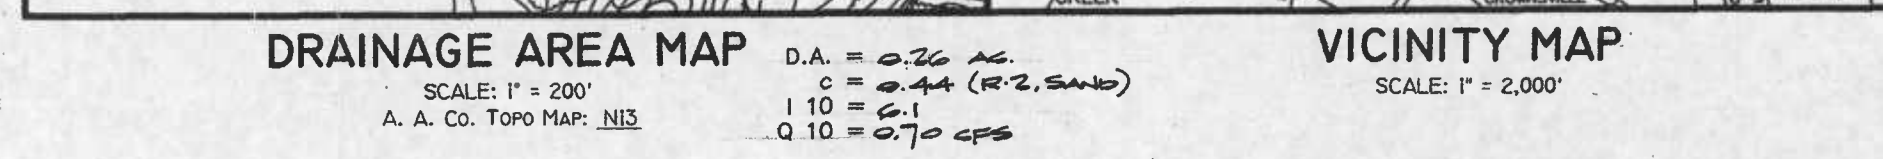 DRAINAGE AREA MAP
SCALE: 1" = 200'
A. A. CO. TOPO MAP: N13
D.A. = 0.26 AC.
c = 0.44 (R.2, SAND)
I 10 = 6.1
Q 10 = 0.70 CFS
VICINITY MAP
SCALE: 1" = 2,000'